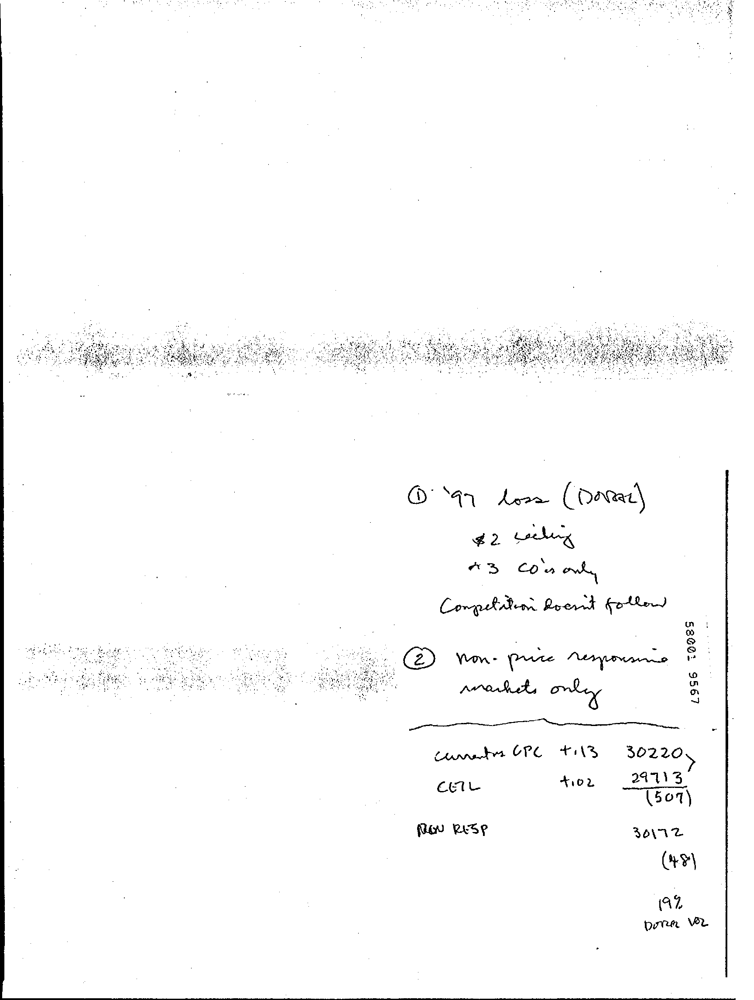 ① '97 loss (DORAL)
$2 ceiling
3 CO's only
Competition doesn't follow
② non-price responsive
markets only
58001 9567
current CPC +.13 30220
CEIL +.02 29713
(507)
NON RESP 30172
(48)
19%
DORAL VOL